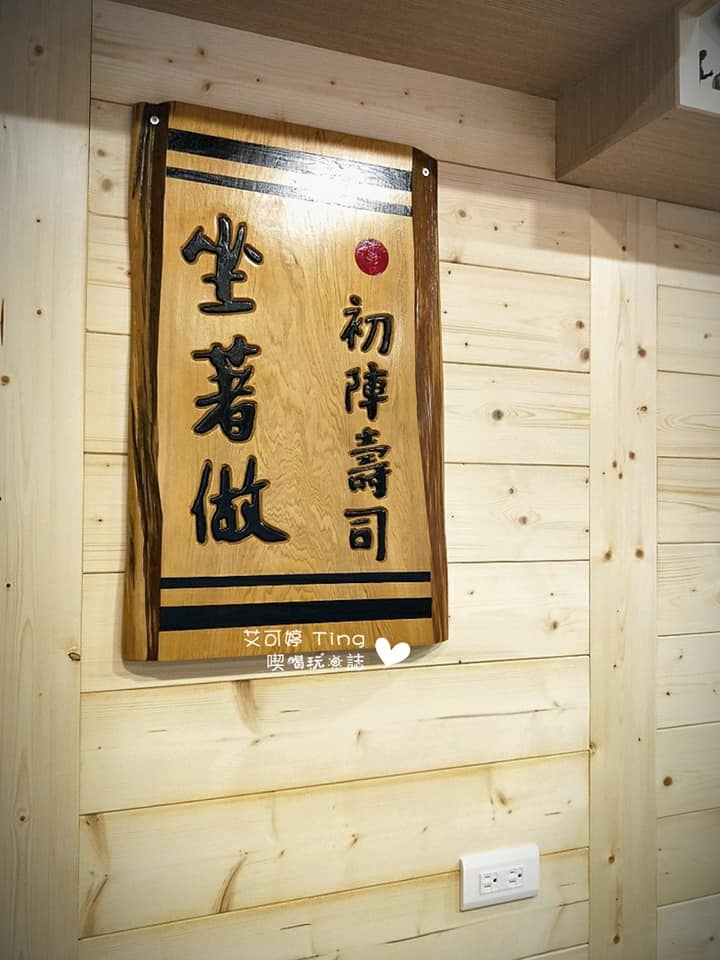 初陣壽司
坐著做
艾可婷 Ting
喫喝玩樂誌